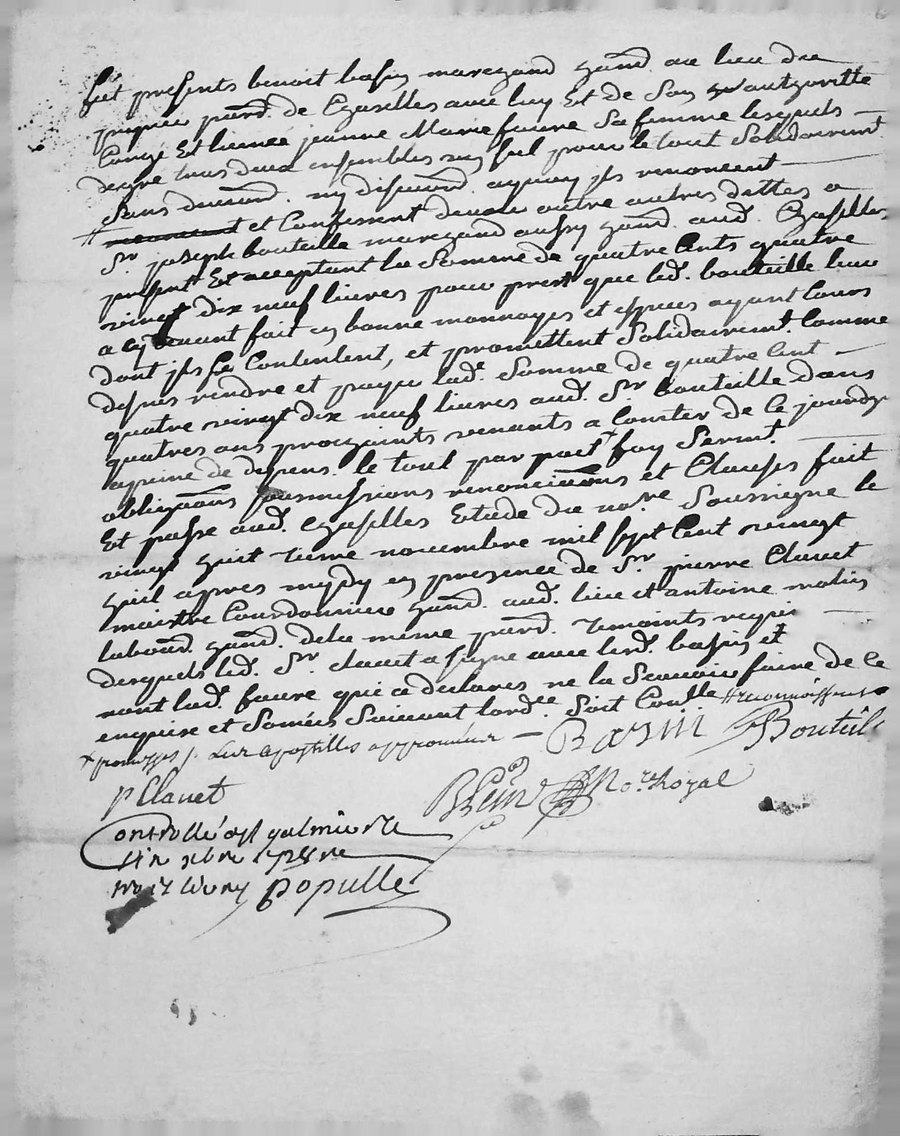 fut presents benoit basin marchand hand. au lieu du
pard. de Chaselles avec luy Et de son authoritté
Congé Et licence jeanne Marie faure sa femme lesquels
de gré tous deux ensembles un seul pour le tout solidairemt.
sans divisio. ny discutio. a quoy ils renoncent
et Confessent devoir autre autres dettes a
Sr. joseph bouteille marchand aussy hand. aud. Chaselles
present Et acceptant la Somme de quatre Cents quatre
vingt dix neuf livres pour prest que led. bouteille leur
a cy devant fait en bonne monnoyes et especes ayant Cours
dont ils Se Contentent, et promettent Solidairemt. Comme
dessus rendre et payer lad. Somme de quatre Cent
quatre vingt dix neuf livres aud. Sr. bouteille dans
quatres ans prochaints venants a Comter de Ce jourdy
a peine de depens. le tout par pact foy Sermt.
obligaōns soumissions renonciaōns et Clauses fait
Et passé aud. Chaselles Etude du nore. Soussigné le
vingt huit ieme novembre mil sept Cent vingt
huit apres mydy en presence de Sr. pierre Clavet
maistre Courdonnier hand. aud. lieu et antoine
labour. hand. de la meme pard. temoints requis
desquels led. Sr. Clavet a signé avec lesd. basin et
non lad. faure qui a declarés ne la Scavoir faire de Ce
enquise et Somées Suivant lord.ce Soit Coulle
les apostilles approuvées — Basin Bouteille
P Clavet
Nore. Royal
Controllé a St galmier le
9bre 1728
trois livres populle